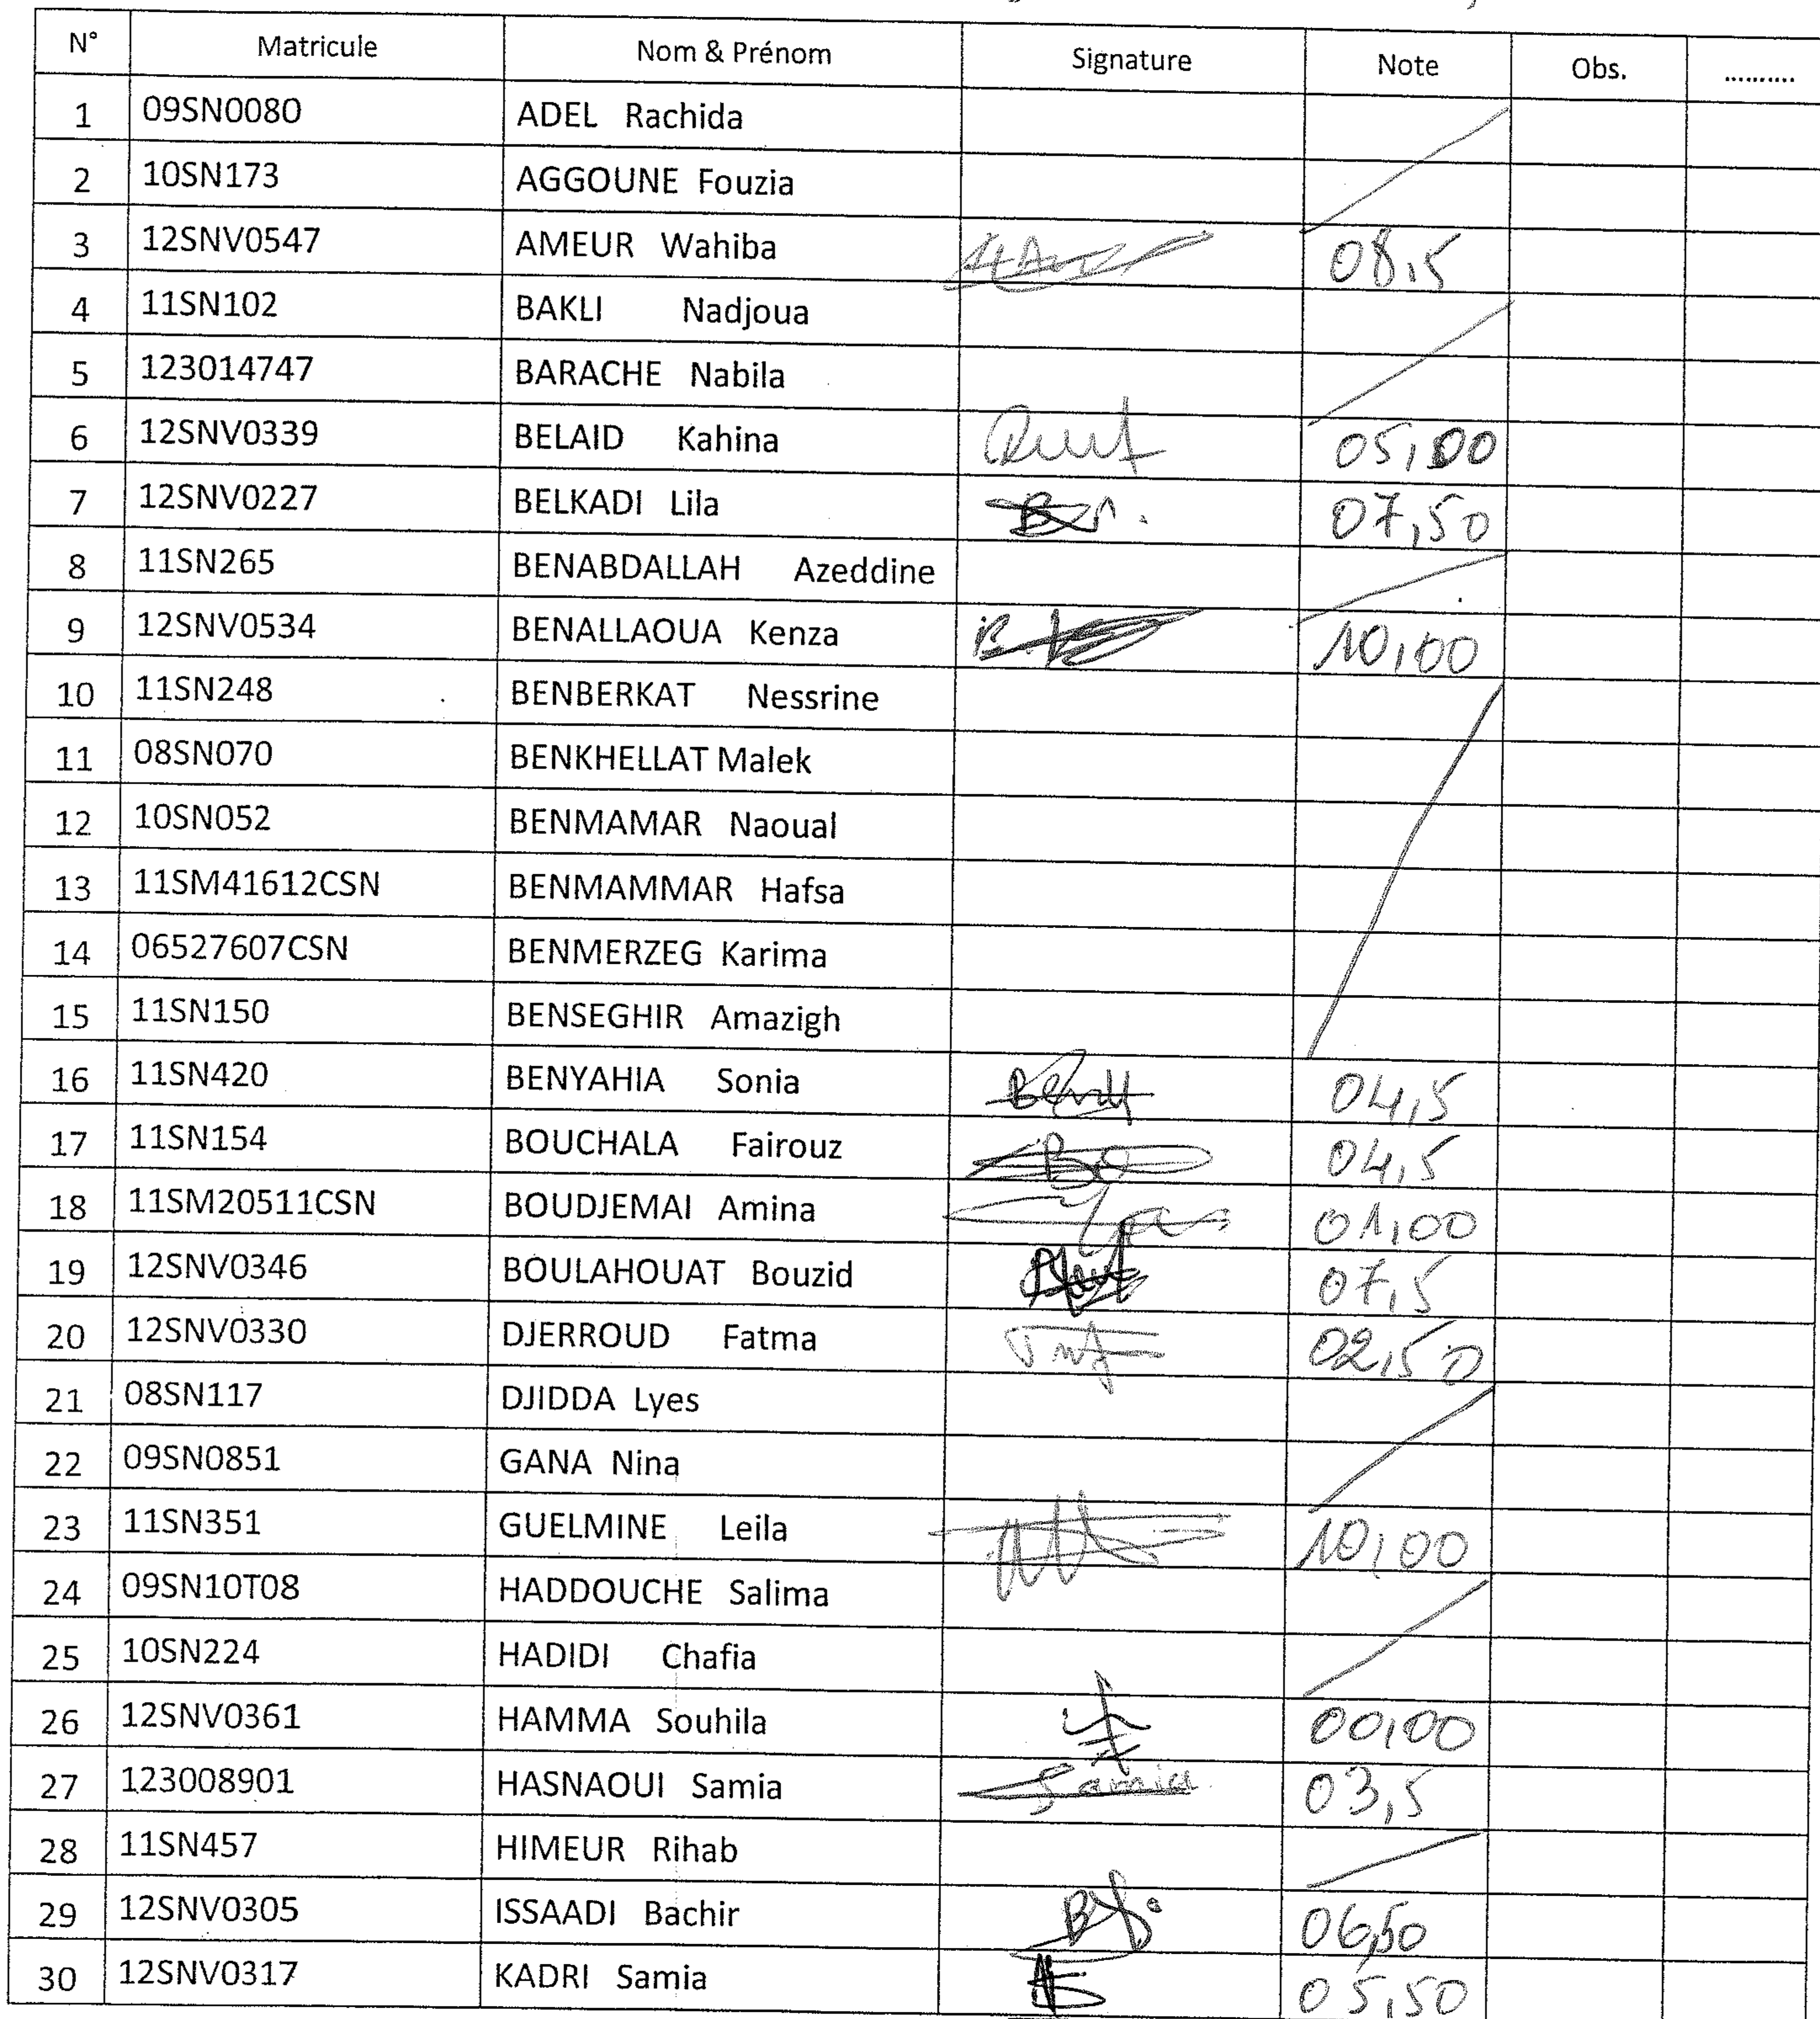 N° Matricule Nom & Prénom Signature Note Obs. ..........
1 09SN0080 ADEL Rachida
2 10SN173 AGGOUNE Fouzia
3 12SNV0547 AMEUR Wahiba 08,5
4 11SN102 BAKLI Nadjoua
5 123014747 BARACHE Nabila
6 12SNV0339 BELAID Kahina 05,00
7 12SNV0227 BELKADI Lila 07,50
8 11SN265 BENABDALLAH Azeddine
9 12SNV0534 BENALLAOUA Kenza 10,00
10 11SN248 BENBERKAT Nessrine
11 08SN070 BENKHELLAT Malek
12 10SN052 BENMAMAR Naoual
13 11SM41612CSN BENMAMMAR Hafsa
14 06527607CSN BENMERZEG Karima
15 11SN150 BENSEGHIR Amazigh
16 11SN420 BENYAHIA Sonia 04,5
17 11SN154 BOUCHALA Fairouz 04,5
18 11SM20511CSN BOUDJEMAI Amina 01,00
19 12SNV0346 BOULAHOUAT Bouzid 07,5
20 12SNV0330 DJERROUD Fatma 02,50
21 08SN117 DJIDDA Lyes
22 09SN0851 GANA Nina
23 11SN351 GUELMINE Leila 10,00
24 09SN10T08 HADDOUCHE Salima
25 10SN224 HADIDI Chafia
26 12SNV0361 HAMMA Souhila 00,00
27 123008901 HASNAOUI Samia Samia 03,5
28 11SN457 HIMEUR Rihab
29 12SNV0305 ISSAADI Bachir 06,50
30 12SNV0317 KADRI Samia 05,50